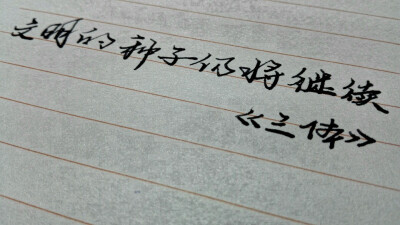 文明的种子仍将继续
《三体》